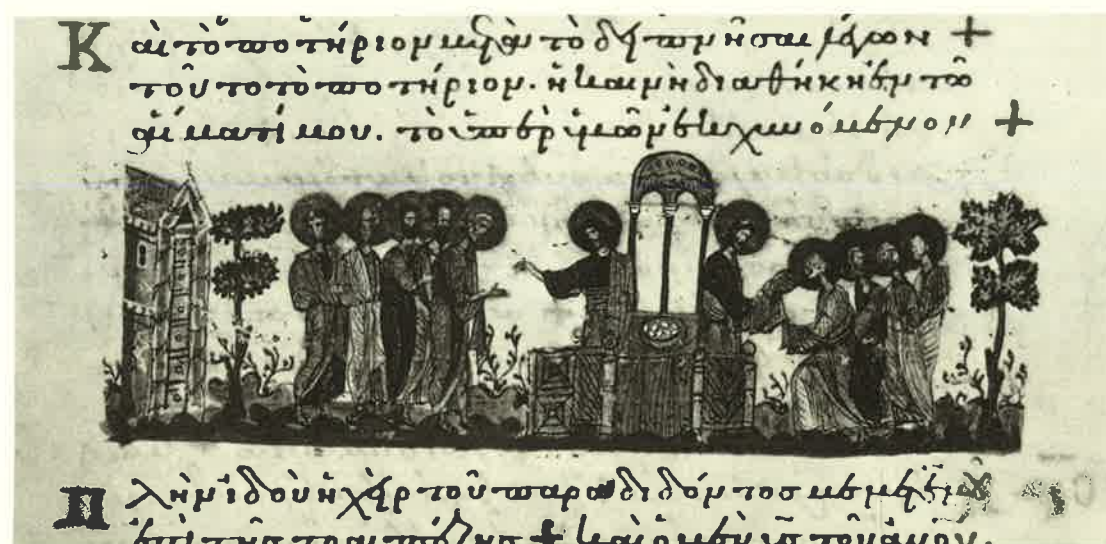 Καὶ τὸ ποτήριον μετὰ τὸ δειπνῆσαι λέγων +
τοῦτο τὸ ποτήριον. ἡ καινὴ διαθήκη ἐν τῶ
αἵματί μου. τὸ ὑπὲρ ὑμῶν ἐκχυνόμενον +
Πλὴν ἰδοὺ ἡ χεὶρ τοῦ παραδιδόντος με μετ' ἐμοῦ
ἐπὶ τῆς τραπέζης + καὶ ὁ μὲν υς τοῦ ἀνου.